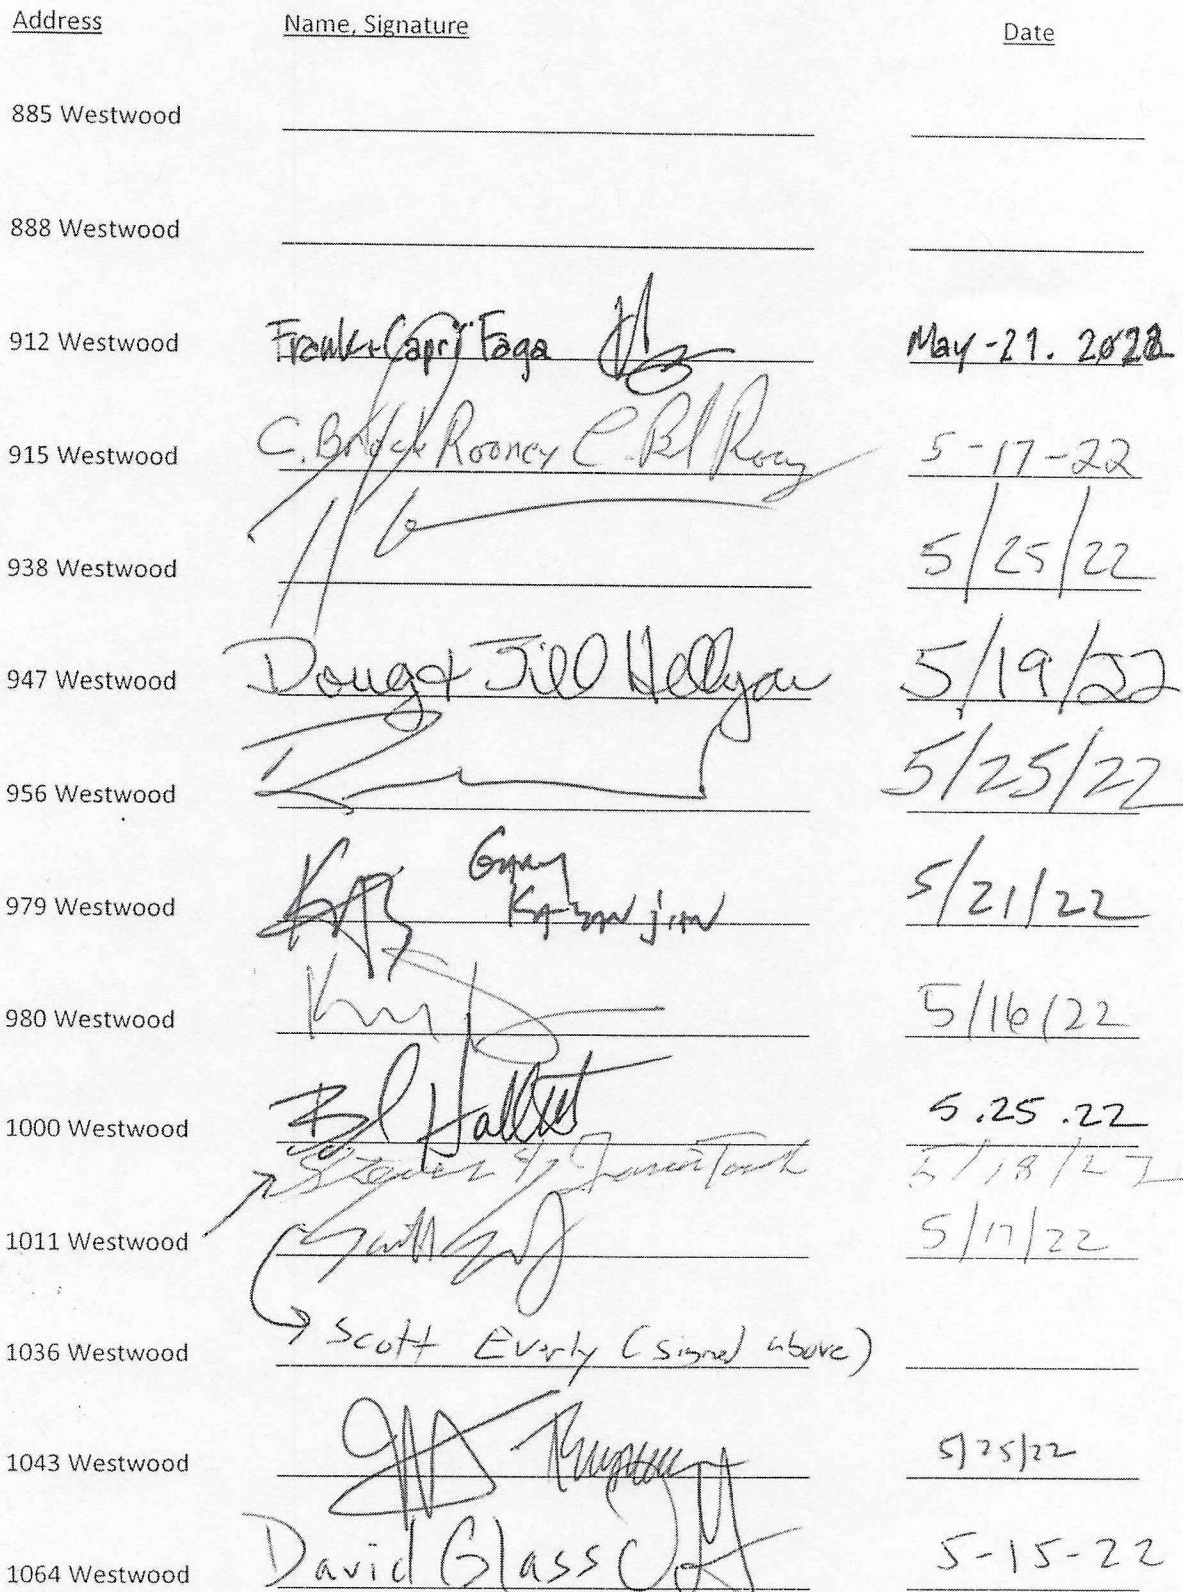 Address Name, Signature Date
885 Westwood
888 Westwood
912 Westwood Frank + Capri Faga May-21. 2022
915 Westwood C. Brock Rooney 5-17-22
938 Westwood 5/25/22
947 Westwood Doug & Jill Hellyar 5/19/22
956 Westwood 5/25/22
979 Westwood Gary Kazanjian 5/21/22
980 Westwood 5/16/22
1000 Westwood Hallett 5.25.22
Steven 5/18/22
1011 Westwood 5/17/22
1036 Westwood Scott Everly (signed above)
1043 Westwood 5/25/22
1064 Westwood David Glass 5-15-22